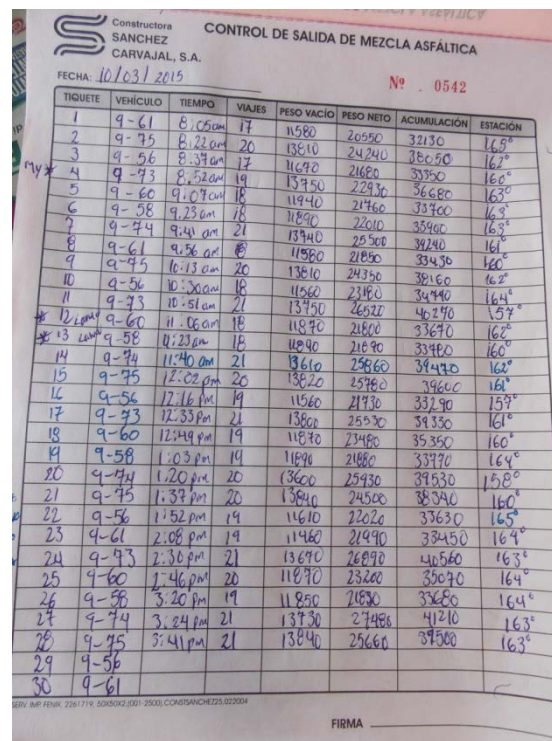 Constructora
SANCHEZ
CARVAJAL, S.A.
CONTROL DE SALIDA DE MEZCLA ASFÁLTICA
FECHA: 10/03/2015
Nº . 0542
TIQUETE VEHÍCULO TIEMPO VIAJES PESO VACÍO PESO NETO ACUMULACIÓN ESTACIÓN
1 9-61 8:05am 17 11580 20550 32130 165°
2 9-75 8:22am 20 13810 24240 38050 162°
3 9-56 8:37am 17 11670 21680 33350 160°
My * 4 9-73 8:52am 19 13750 22930 36680 163°
5 9-60 9:07am 18 11940 21760 33700 163°
6 9-58 9.23am 18 11890 22010 33900 163°
7 9-74 9:41 am 21 13740 25500 39240 161°
8 9-61 9.56 am 18 11580 21850 33430 160°
9 9-75 10:13 am 20 13810 24350 38160 162°
10 9-56 10:30am 18 11560 23180 34740 164°
11 9-73 10:51am 21 13750 26520 40270 157°
* 12 9-60 11.06am 18 11870 21800 33670 162°
* 13 9-58 11:23am 18 11890 21890 33780 160°
14 9-74 11:40 am 21 13610 25860 39470 162°
15 9-75 12:02pm 20 13820 25780 39600 161°
16 9-56 12:16pm 19 11560 21730 33290 157°
17 9-73 12:33pm 21 13800 25530 39330 161°
18 9-60 12:49pm 19 11870 23480 35350 160°
19 9-58 1:03pm 19 11890 21880 33770 164°
20 9-74 1:20pm 20 13600 25930 39530 158°
21 9-75 1:37pm 20 13840 24500 38340 160°
22 9-56 1:52pm 19 11610 22020 33630 165°
23 9-61 2:08pm 19 11460 21990 33450 164°
24 9-73 2:30pm 21 13670 26890 40560 163°
25 9-60 2:46pm 20 11870 23200 35070 164°
26 9-58 3:20pm 19 11850 21830 33680 164°
27 9-74 3:24pm 21 13730 27480 41210 163°
28 9-75 3:41pm 21 13840 25660 39500 163°
29 9-56
30 9-61
SERV. IMP. FENIX, 2261719, 50X50X2,(001-2500),CONSTSANCHEZ25,022004
FIRMA